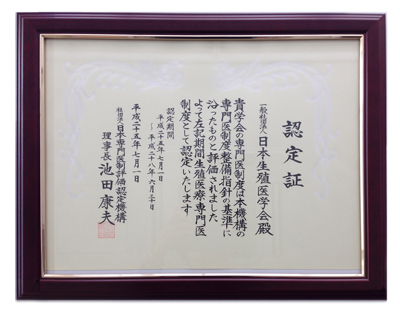 認定証
一般社団法人 日本生殖医学会殿
貴学会の専門医制度は本機構の
専門医制度整備指針の基準に
沿ったものと評価されました
よって左記期間生殖医療専門医
制度として認定いたします
認定期間
平成二十五年七月一日
～平成二十八年六月三十日
平成二十五年七月一日
社団法人 日本専門医制評価・認定機構
理事長 池田康夫